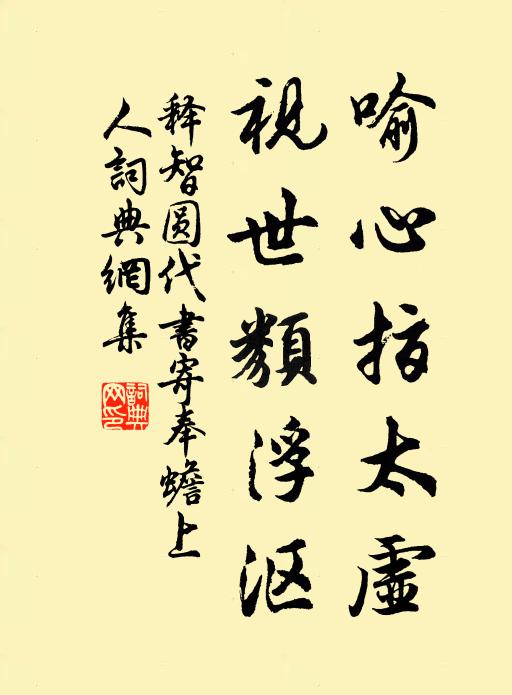 喻心指太虚
視世類浮沤
释智圆代書寄奉蟾上
人詞典網集
詞典網印